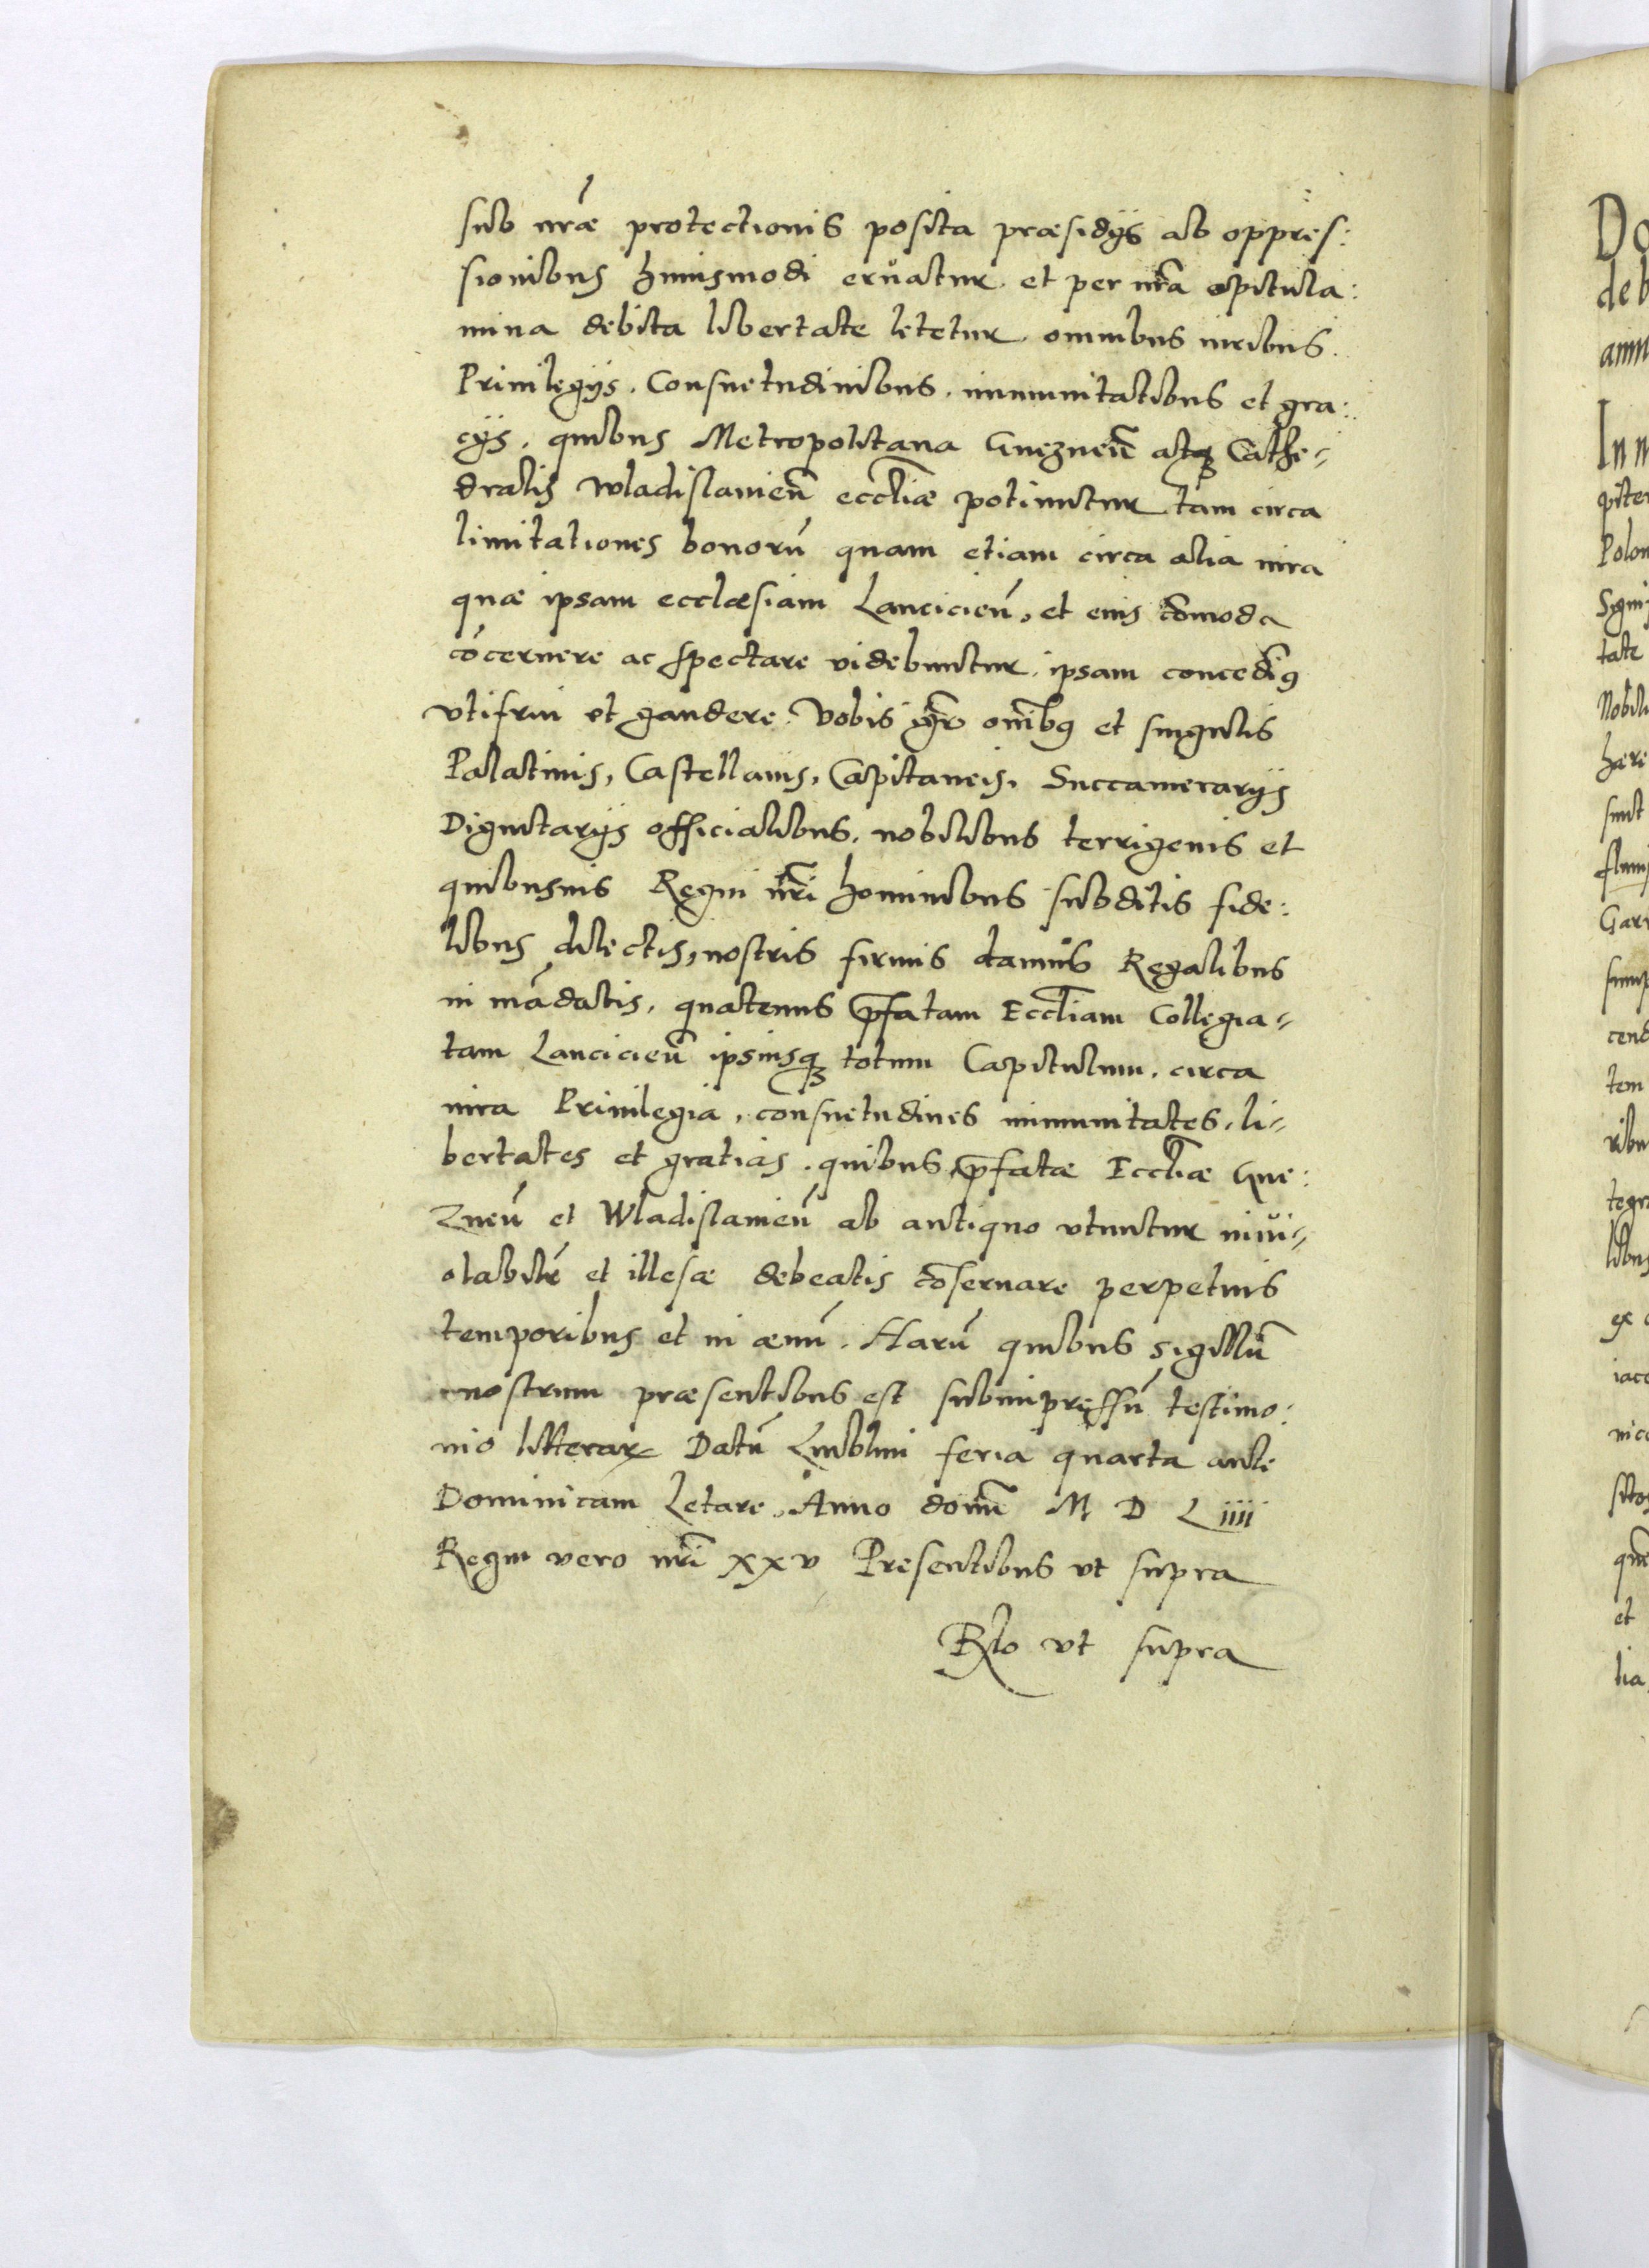 sub nrãe protectionis posita præsidÿs ab oppres:
sionibus huiusmodi eruatur. et per nrã opitula:
mina debita libertate letetur. omnibus iuribus.
Priuilegÿs. Consuetudinibus. immunitatibus et gra:
cÿs. quibus Metropolitana Gnezneñ atq Cathe-
dralis Wladislauieñ eccłiæ potiuntur tam circa
limitationes bonorũ quam etiam circa alia iura
quæ ipsam ecclæsiam Lancicieñ, et eius cõmoda
cõcernere ac spectare videbuntur. ipsam concedim9
vtifrui et gaudere. Vobis igr̃ omib9 et singulis
Palatinis, Castellanis, Capitaneis. Succamerarÿs
Dignitarÿs officialibus. nobilibus terrigenis et
quibusuis Regni nrĩ hominibus subditis fide:
libus dilectis, nostris firmis damus Regalibus
in mãdatis. quatenus p̃fatam Eccłiam Collegia-
tam Lancicieñ ipsiusq totum Capitulum. circa
iura Priuilegia. consuetudines immunitates. li-
bertates et gratias. quibus p̃fatæ Eccłiæ Gne:
Zneñ et Wladislauieñ ab antiquo vtuntur inui-
olabilr̃ et illesæ debeatis cõseruare perpetuis
temporibus et in æuũ. Harũ quibus sigillũ
nostrum præsentibus est subimpressũ testimo:
nio litterar Datũ Lublini feria quarta ante
Dominicam Letare. Anno domĩ M D L iiii
Regni vero nrĩ xxv Presentibus vt supra
Rlo vt supra